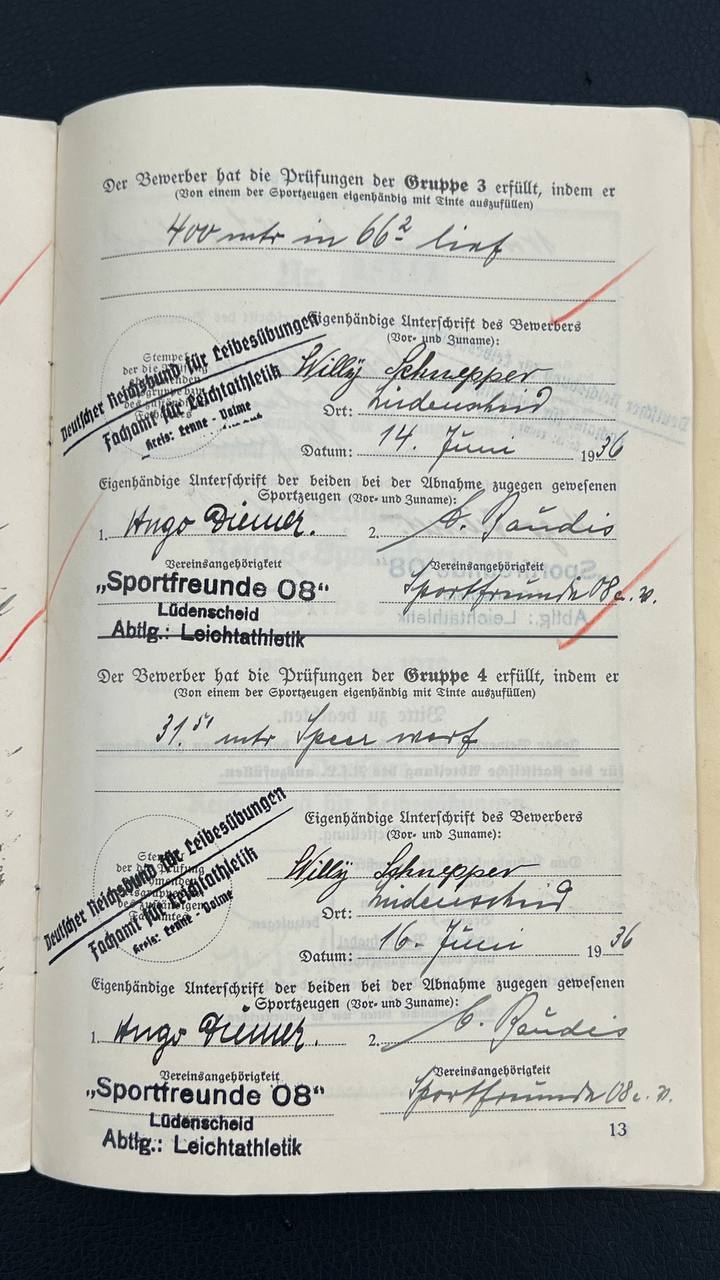 Der Bewerber hat die Prüfungen der Gruppe 3 erfüllt, indem er
(Von einem der Sportzeugen eigenhändig mit Tinte auszufüllen)
400 mtr in 66² lief
Eigenhändige Unterschrift des Bewerbers
(Vor- und Zuname):
Willÿ Schnepper
Ort: Lüdenscheid
Datum: 14. Juni 1936
Stempel
der die Prüfung
Deutscher Reichsbund für Leibesübungen
Fachamt für Leichtathletik
Kreis: Lenne - Volme
Eigenhändige Unterschrift der beiden bei der Abnahme zugegen gewesenen
Sportzeugen (Vor- und Zuname):
1. Hugo Diemer. 2. C. Baudis
Vereinsangehörigkeit Vereinsangehörigkeit
„Sportfreunde 08“ Sportfreunde 08 e. V.
Lüdenscheid
Abtlg.: Leichtathletik
Der Bewerber hat die Prüfungen der Gruppe 4 erfüllt, indem er
(Von einem der Sportzeugen eigenhändig mit Tinte auszufüllen)
31.51 mtr Speer warf
Eigenhändige Unterschrift des Bewerbers
(Vor- und Zuname):
Willÿ Schnepper
Ort: Lüdenscheid
Datum: 16. Juni 1936
Stempel
der die Prüfung
Deutscher Reichsbund für Leibesübungen
Fachamt für Leichtathletik
Kreis: Lenne - Volme
Eigenhändige Unterschrift der beiden bei der Abnahme zugegen gewesenen
Sportzeugen (Vor- und Zuname):
1. Hugo Diemer. 2. C. Baudis
Vereinsangehörigkeit Vereinsangehörigkeit
„Sportfreunde 08“ Sportfreunde 08 e. V.
Lüdenscheid
Abtlg.: Leichtathletik
13